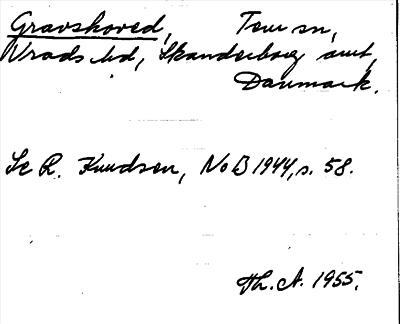 Gravskoved, Tem sn,
Vrads hd, Skanderborg amt,
Danmark.
Se R. Knudsen, NoB 1944, s. 58.
Th. A. 1955.